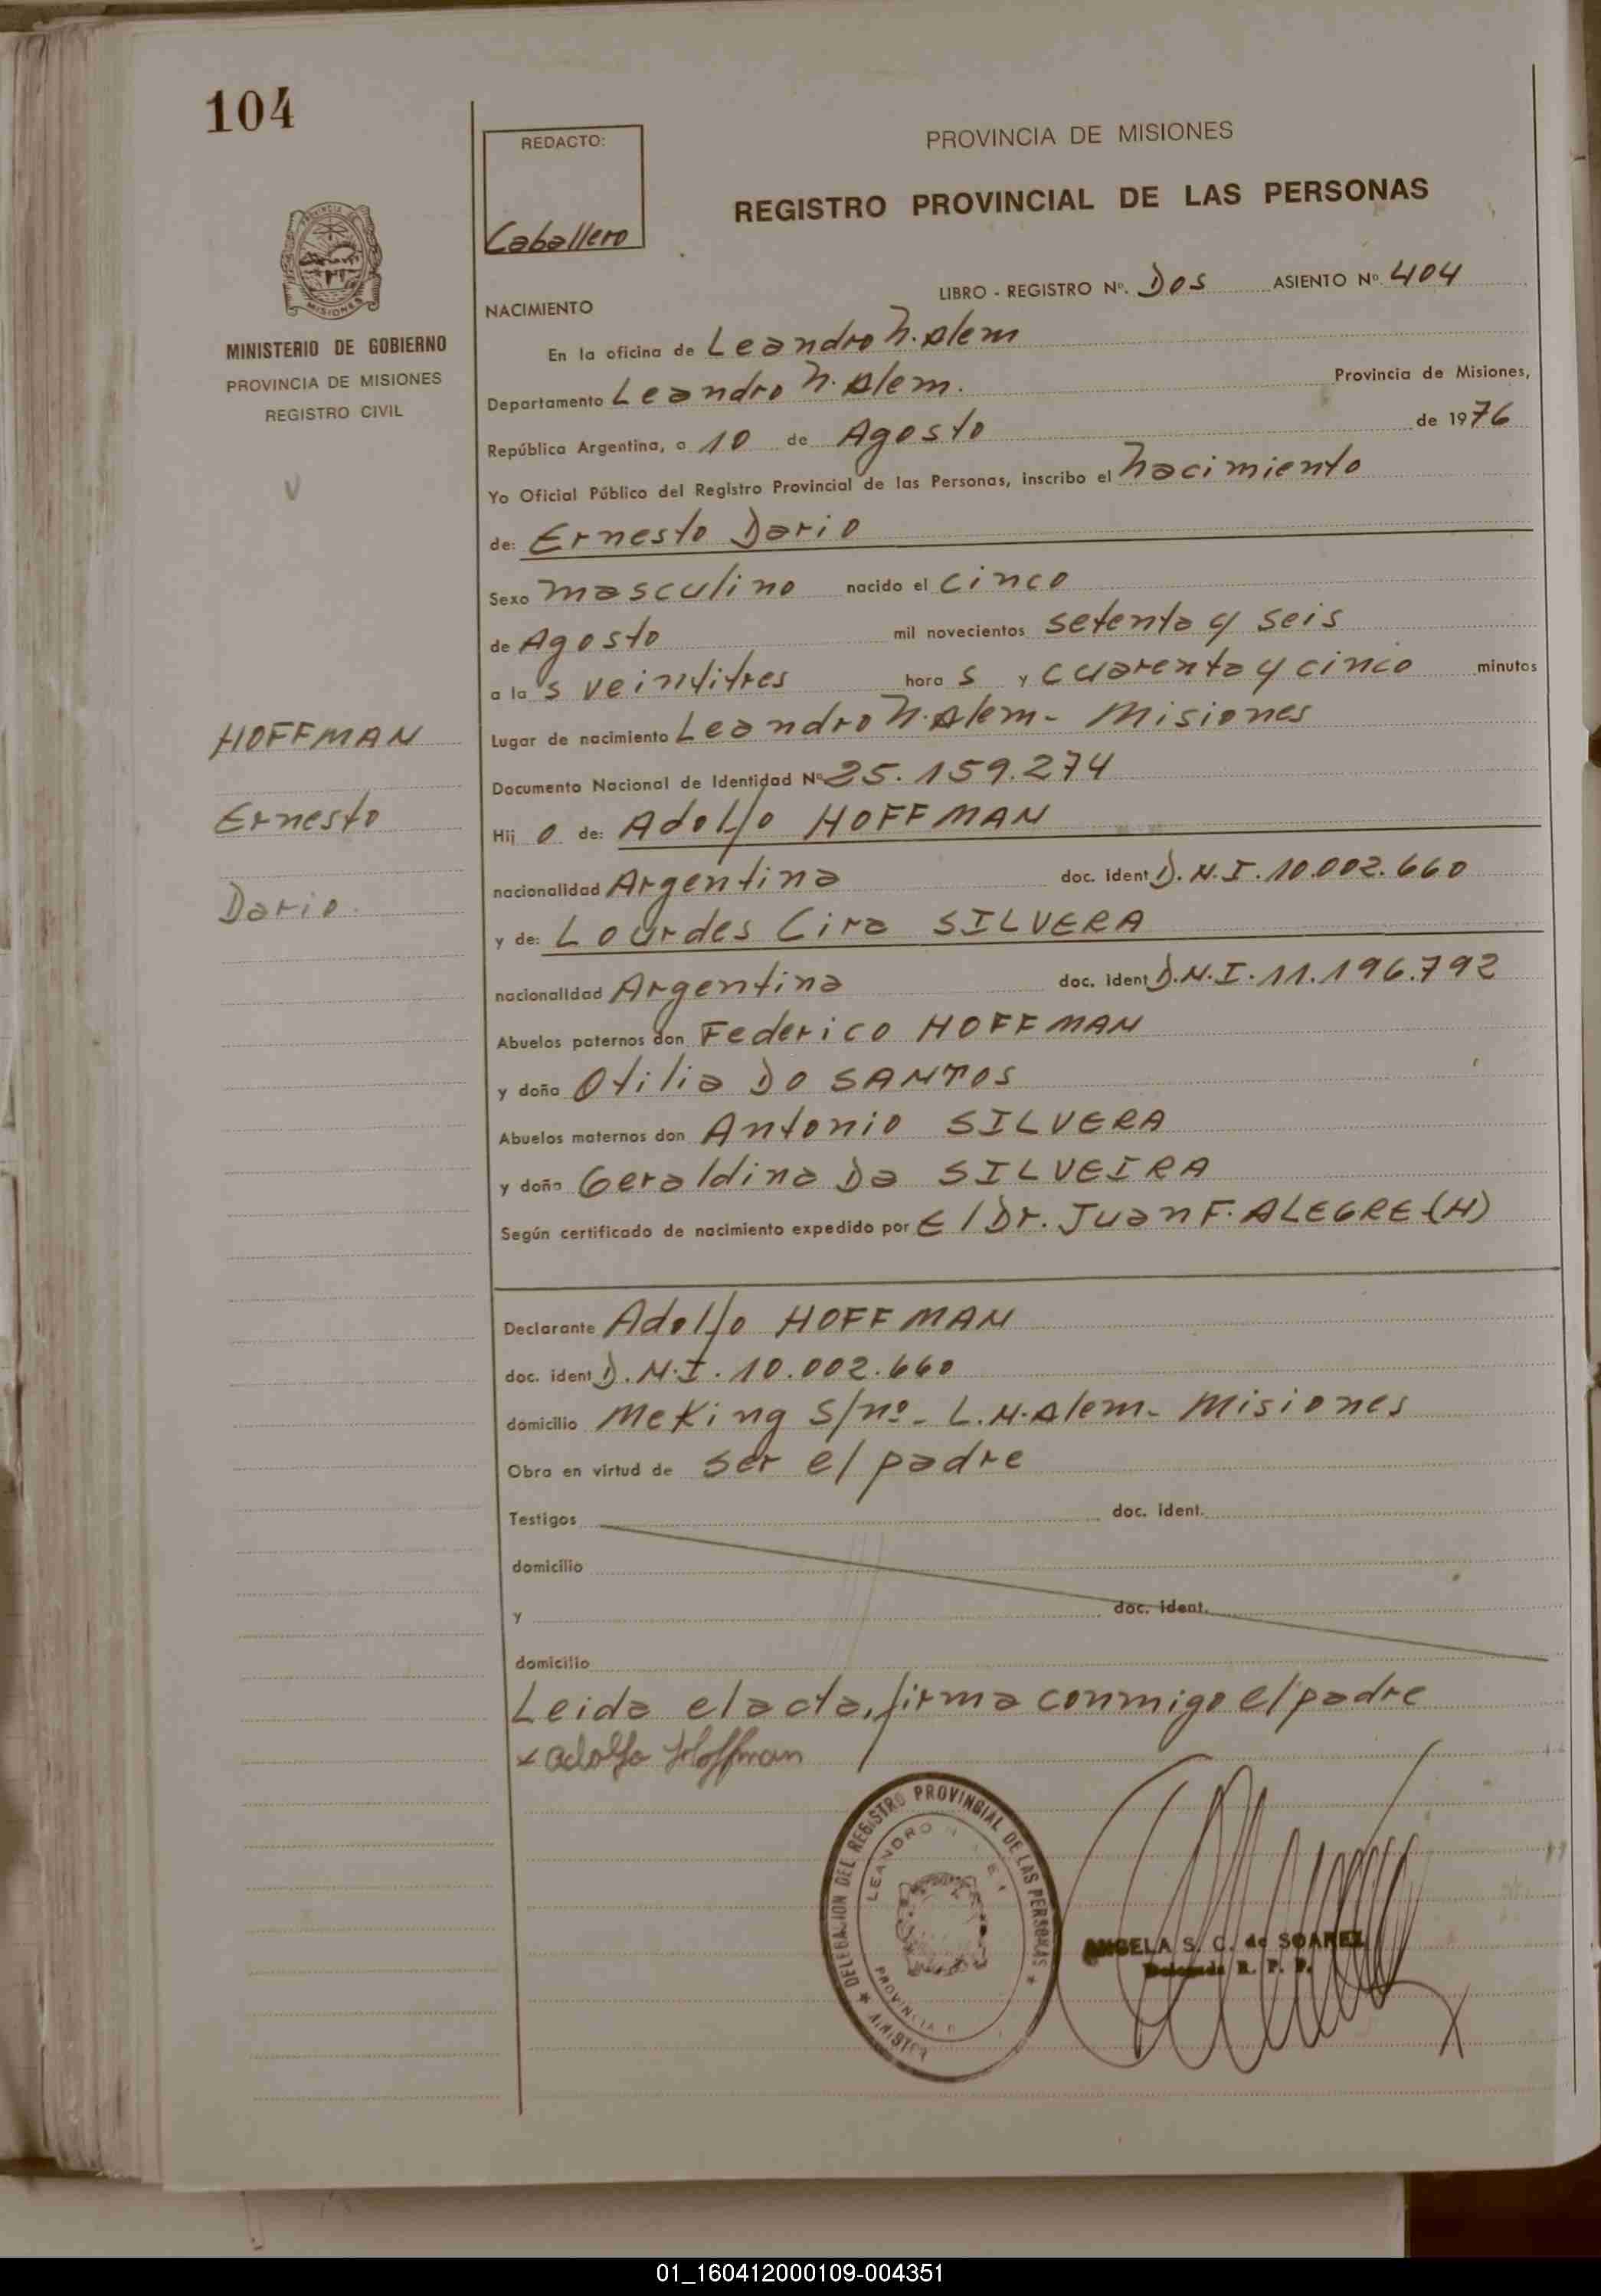 104
REDACTO:
Caballero
PROVINCIA DE MISIONES
REGISTRO PROVINCIAL DE LAS PERSONAS
PROVINCIA DE
MISIONES
MINISTERIO DE GOBIERNO
PROVINCIA DE MISIONES
REGISTRO CIVIL
LIBRO - REGISTRO Nº. Dos ASIENTO Nº. 404
NACIMIENTO
En la oficina de Leandro N. Alem
Departamento Leandro N. Alem. Provincia de Misiones,
República Argentina, a 10 de Agosto de 1976
Yo Oficial Público del Registro Provincial de las Personas, inscribo el nacimiento
de: Ernesto Dario
Sexo masculino nacido el cinco
de Agosto mil novecientos setenta y seis
a la s veintitres hora s y cuarenta y cinco minutos
Lugar de nacimiento Leandro N. Alem - Misiones
Documento Nacional de Identidad Nº 25.159.274
Hij o de: Adolfo HOFFMAN
nacionalidad Argentina doc. ident D.N.I. 10.002.660
y de: Lourdes Cira SILVERA
nacionalidad Argentina doc. ident D.N.I. 11.196.792
Abuelos paternos don Federico HOFFMAN
y doña Otilia DO SANTOS
Abuelos maternos don Antonio SILVERA
y doña Geraldina Da SILVEIRA
Según certificado de nacimiento expedido por El Dr. Juan F. ALEGRE-(H)
HOFFMAN
Ernesto
Dario.
Declarante Adolfo HOFFMAN
doc. ident D.N.I. 10.002.660
domicilio Meking S/nº - L.N. Alem - Misiones
Obra en virtud de ser el padre
Testigos doc. ident.
domicilio
y doc. ident.
domicilio
Leida el acta, firma conmigo el padre
x Adolfo Hoffman
DELEGACION DEL REGISTRO PROVINCIAL DE LAS PERSONAS
LEANDRO N.
PROVINCIA
ANGELA S. C. de SOAREZ
Delegada R. P. P.
01_160412000109-004351